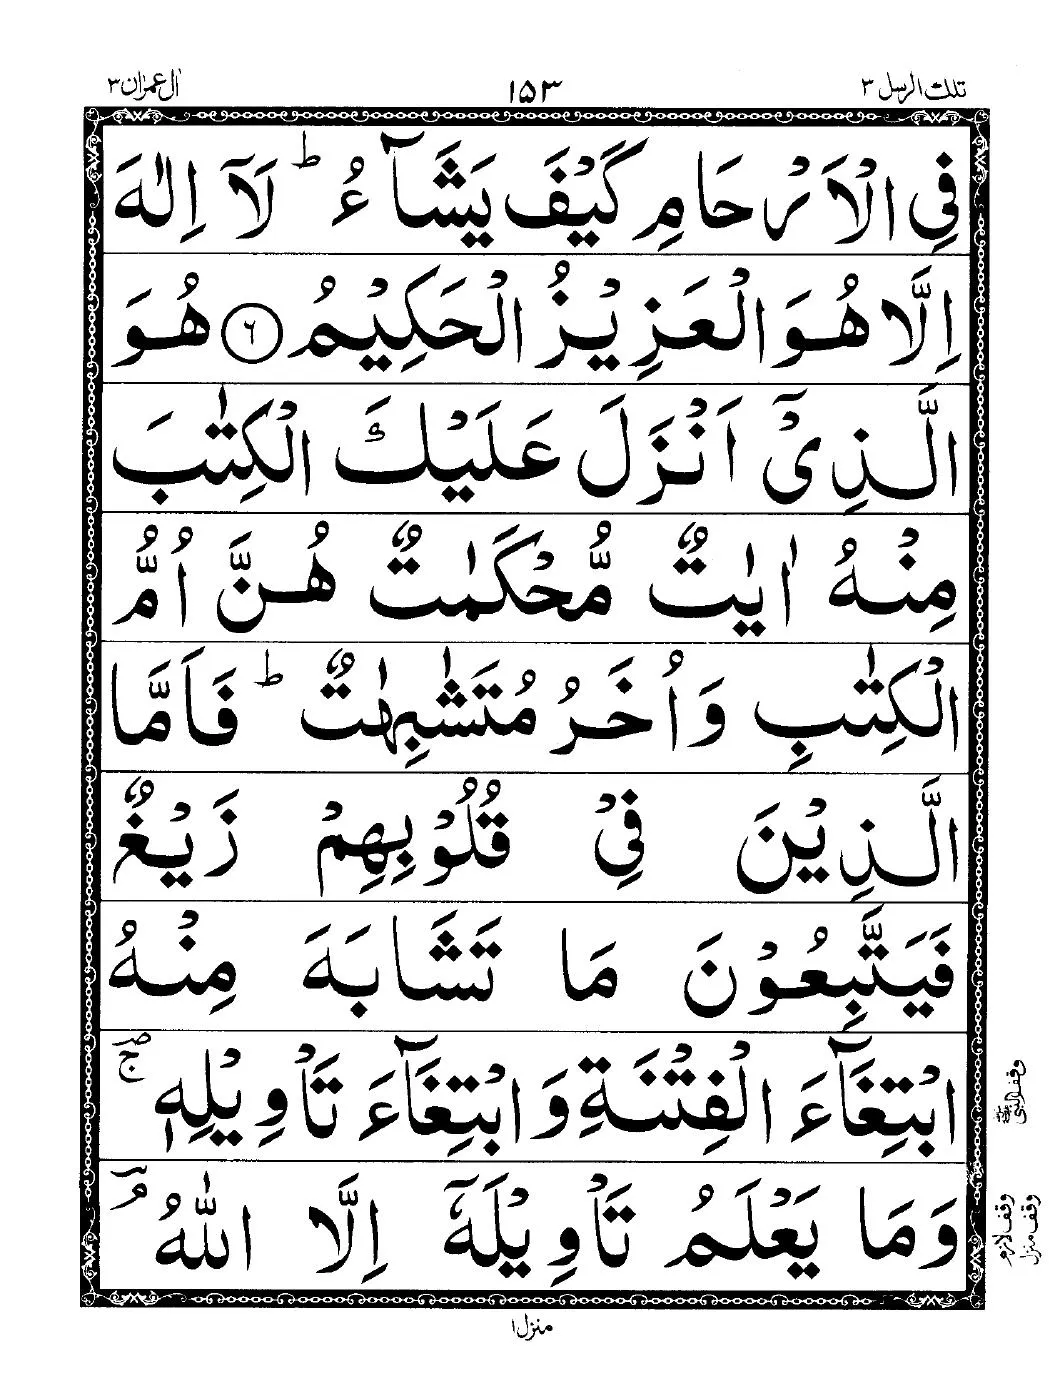 تلك الرسل ٣
١٥٣
اٰل عمرٰن ٣
فِي الْاَرْحَامِ كَيْفَ يَشَآءُ ؕ لَاۤ اِلٰهَ
اِلَّا هُوَ الْعَزِيْزُ الْحَكِيْمُ ٦ هُوَ
الَّذِيْۤ اَنْزَلَ عَلَيْكَ الْكِتٰبَ
مِنْهُ اٰيٰتٌ مُّحْكَمٰتٌ هُنَّ اُمُّ
الْكِتٰبِ وَاُخَرُ مُتَشٰبِهٰتٌ ؕ فَاَمَّا
الَّذِيْنَ فِيْ قُلُوْبِهِمْ زَيْغٌ
فَيَتَّبِعُوْنَ مَا تَشَابَهَ مِنْهُ
ابْتِغَآءَ الْفِتْنَةِ وَابْتِغَآءَ تَاْوِيْلِهٖ ۚ
وَمَا يَعْلَمُ تَاْوِيْلَهٗۤ اِلَّا اللّٰهُ ۘ
وقف النبي ﷺ
وقف لازم
وقف منزل
منزل ١